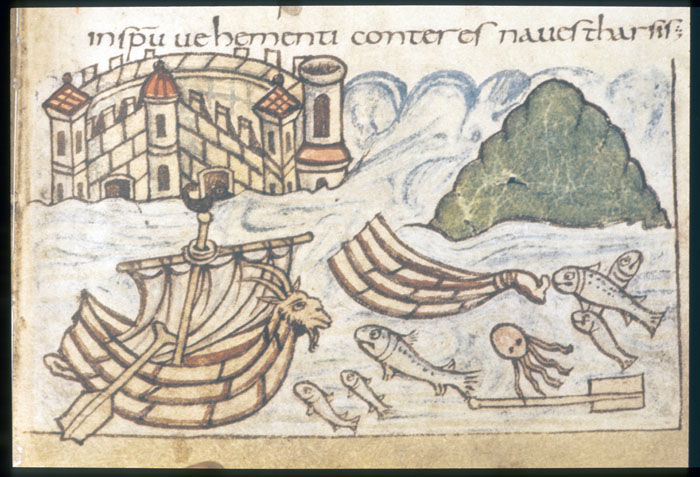 in spu uehementi conteres naues tharsis: